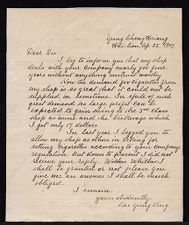 Yung Cheng Kiang
Wei Hai Wei, Sep 25 1907
Dear Sir
I beg to inform you that my shop
deals with your Company nearly for five
years without anything untrust worthy.
Now the demand for Cigarettes from
my shop is so great that it could not be
supplied in sometime. In spite of such
great demand no large profit can be
expected to gain owing to the 2nd class of
shop as mine and the brokerage which
I got only 17 dollars.
In last year I begged you to
allow my shop as others in
selling Cigarettes according to your Company
regulation. But down to present I did not
receive your reply. Whether
shall be granted or not please you
give me an answer I shall be much
obliged.
I remain
yours obediently